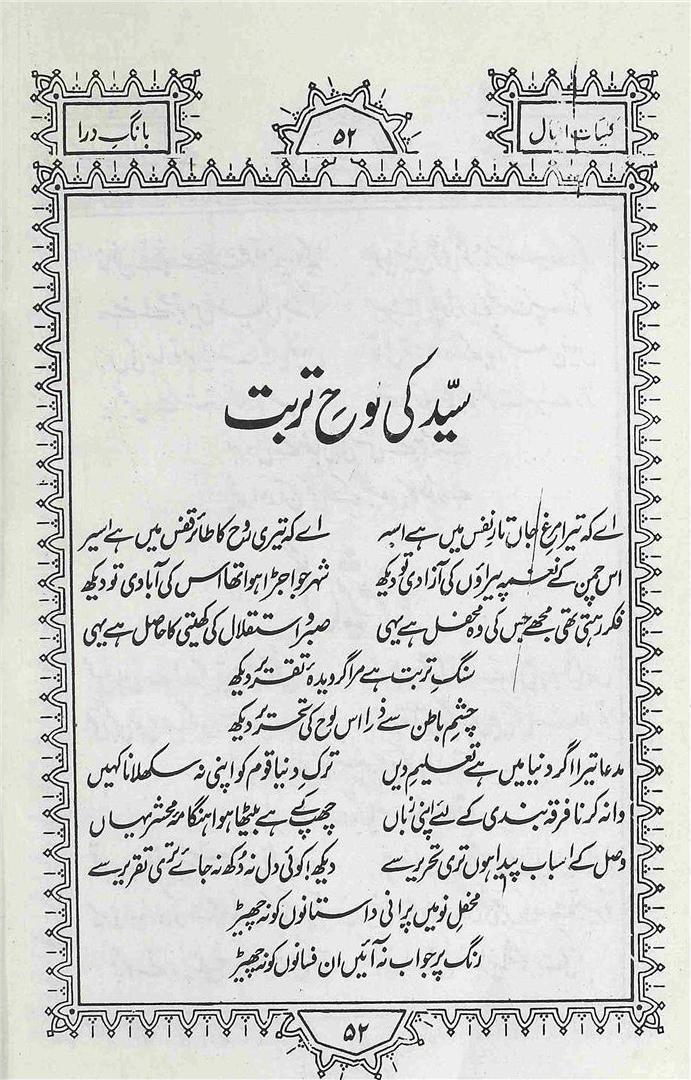 کلیات اقبال ۵۲ بانگِ درا
سیّد کی لوحِ تربت
اے کہ تیرا مرغِ جاں تارِ نفس میں ہے اسیر اے کہ تیری روح کا طائر قفس میں ہے اسیر
اس چمن کے نغمہ پیراؤں کی آزادی تو دیکھ شہر جو اجڑا ہوا تھا اس کی آبادی تو دیکھ
فکر رہتی تھی مجھے جس کی وہ محفل ہے یہی صبر و استقلال کی کھیتی کا حاصل ہے یہی
سنگِ تربت ہے مرا گرویدۂ تقریر دیکھ
چشمِ باطن سے ذرا اس لوح کی تحریر دیکھ
مدعا تیرا اگر دنیا میں ہے تعلیمِ دیں ترکِ دنیا قوم کو اپنی نہ سکھلانا کہیں
وا نہ کرنا فرقہ بندی کے لئے اپنی زباں چھپ کے ہے بیٹھا ہوا ہنگامۂ محشر یہاں
وصل کے اسباب پیدا ہوں تری تحریر سے دیکھ! کوئی دل نہ دُکھ جائے تری تقریر سے
محفلِ نو میں پرانی داستانوں کو نہ چھیڑ
رنگ پر جو اب نہ آئیں ان فسانوں کو نہ چھیڑ
۵۲